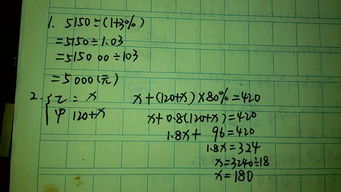 1. 5150÷(1+3%)
=5150÷1.03
=515000÷103
=5000(元)
2. 乙 = x x+(120+x)×80%=420
甲 120+x x+0.8(120+x)=420
1.8x+ 96=420
1.8x=324
x=3240÷18
x=180